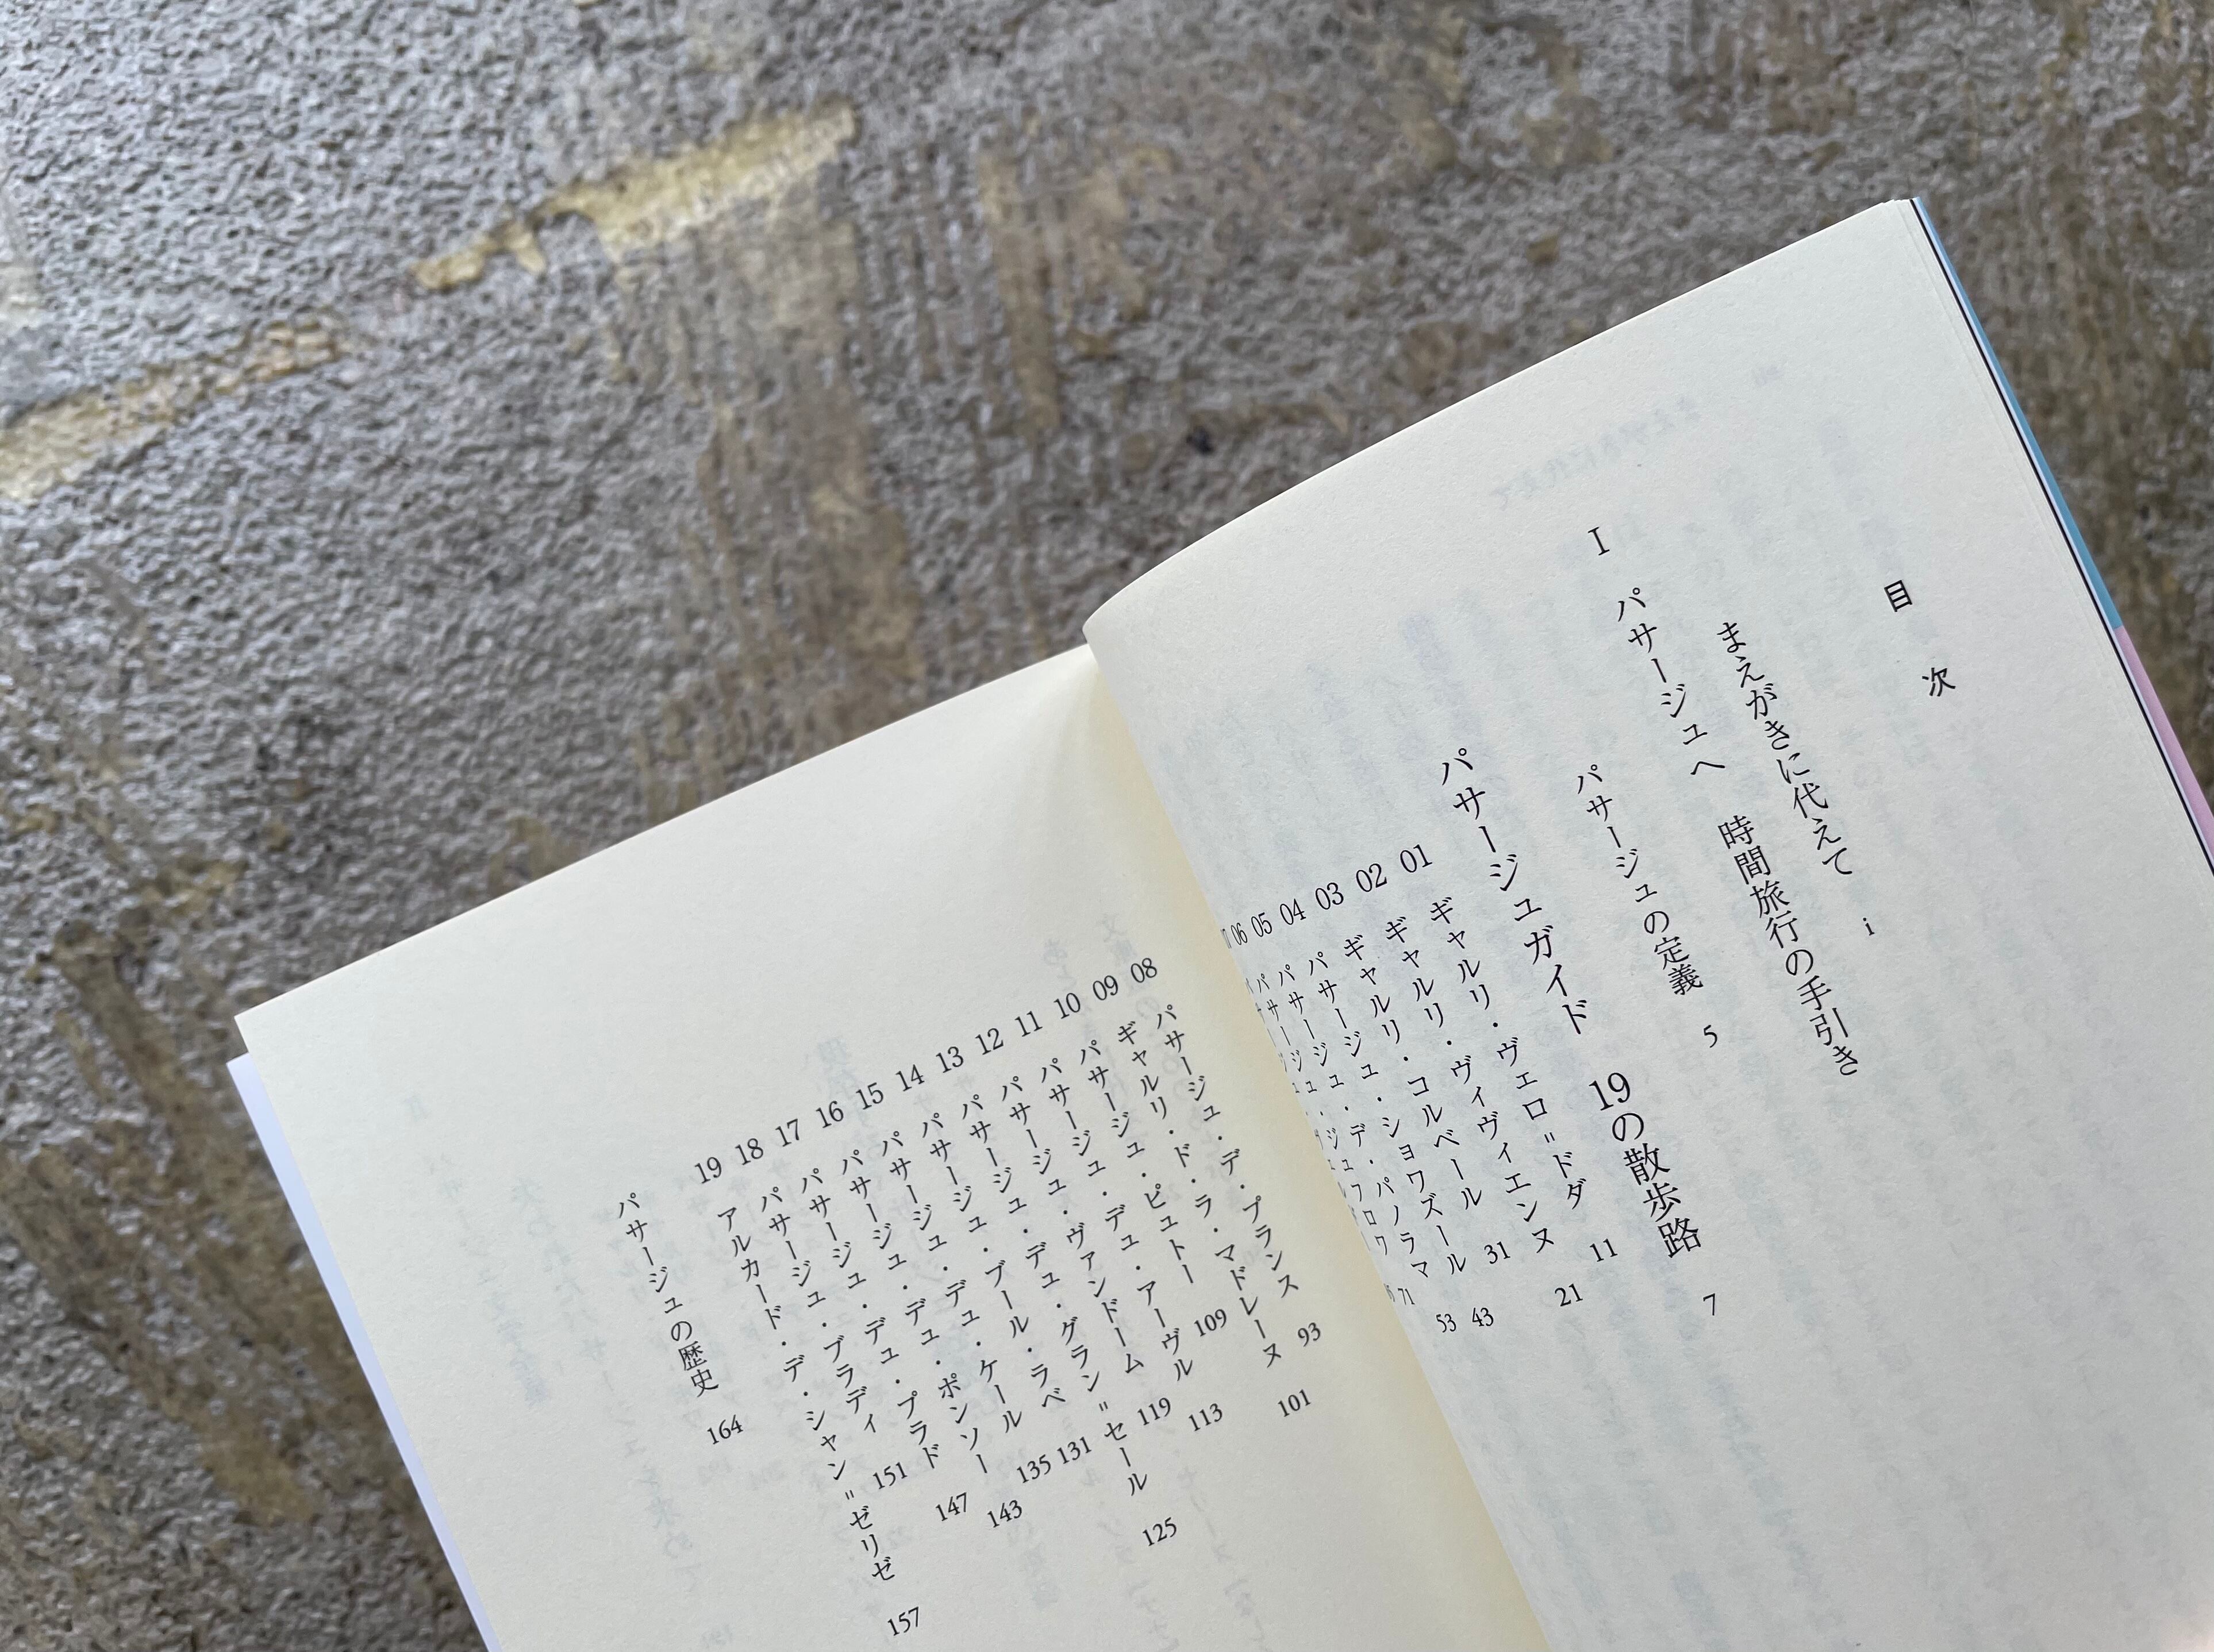 目次
まえがきに代えて i
I パサージュへ 時間旅行の手引き
パサージュの定義 5
パサージュガイド 19の散歩路 7
01 ギャルリ・ヴェロ=ドダ 11
02 ギャルリ・ヴィヴィエンヌ 21
03 ギャルリ・コルベール 31
04 パサージュ・ショワズール 43
05 パサージュ・デ・パノラマ 53
06 パサージュ・ジュフロワ 71
08 パサージュ・デ・プランス 93
09 ギャルリ・ド・ラ・マドレーヌ 101
10 パサージュ・ピュトー 109
11 パサージュ・デュ・アーヴル 113
12 パサージュ・ヴァンドーム 119
13 パサージュ・デュ・グラン=セール 125
14 パサージュ・ブール・ラベ 131
15 パサージュ・デュ・ケール 135
16 パサージュ・デュ・ポンソー 143
17 パサージュ・デュ・プラド 147
18 パサージュ・ブラディ 151
19 アルカード・デ・シャン=ゼリゼ 157
パサージュの歴史 164